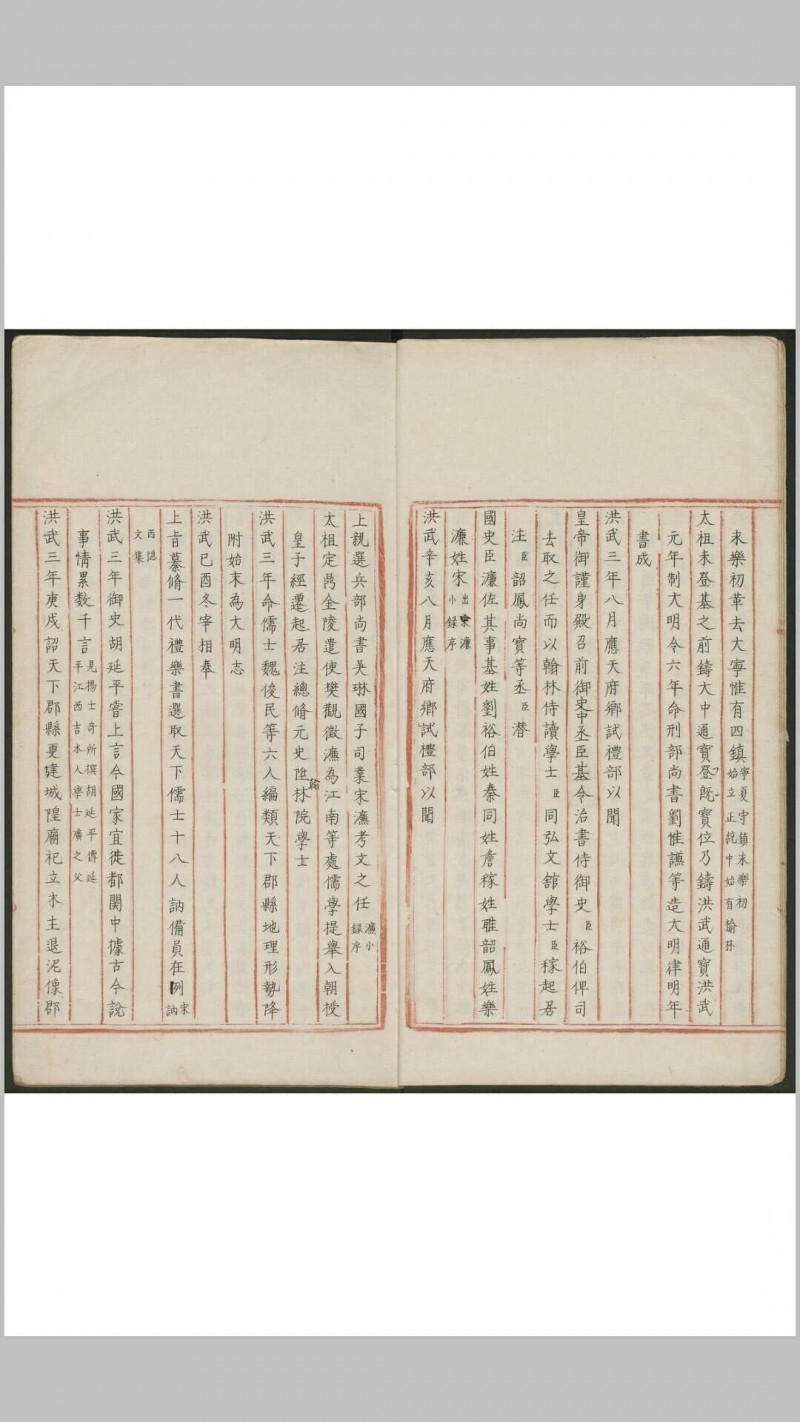 永樂初革去大寧惟有四鎮寧夏守鎮永樂初始立正統中始有榆林
太祖未登基之前鑄大中通寶登既寶位乃鑄洪武通寶洪武
元年制大明令六年命刑部尚書劉惟謙等造大明律明年
書成
洪武三年八月應天府鄉試禮部以聞
皇帝御謹身殿召前御史中丞臣基今治書侍御史臣裕伯俾司
去取之任而以翰林侍讀學士臣同弘文舘學士臣稼起居
注臣韶鳳尚寶等丞臣潜
國史臣濂佐其事基姓劉裕伯姓秦同姓詹稼姓睢韶鳳姓樂
濂姓宋出宋濂小録序
洪武辛亥八月應天府鄉試禮部以聞
上親選兵部尚書吳琳國子司業宋濂考文之任濂小録序
太祖定鼎金陵遣使樊觀徵濂為江南等處儒學提舉入朝授
皇子經遷起居注總脩元史陞翰林院學士
洪武三年命儒士魏俊民等六人編類天下郡縣地理形勢降
附始末為大明志
洪武己酉冬宰相奉
上㫖纂脩一代禮樂書選取天下儒士十八人訥備員在例宋訥
西隠文集
洪武三年御史胡延平甞上言今國家宜徙都関中據古今說
事情累数千言見楊士奇所撰胡延平傳延平江西吉水人學士廣之父
洪武三年庚戌詔天下郡縣更建城隍廟祀立木主退泥像郡